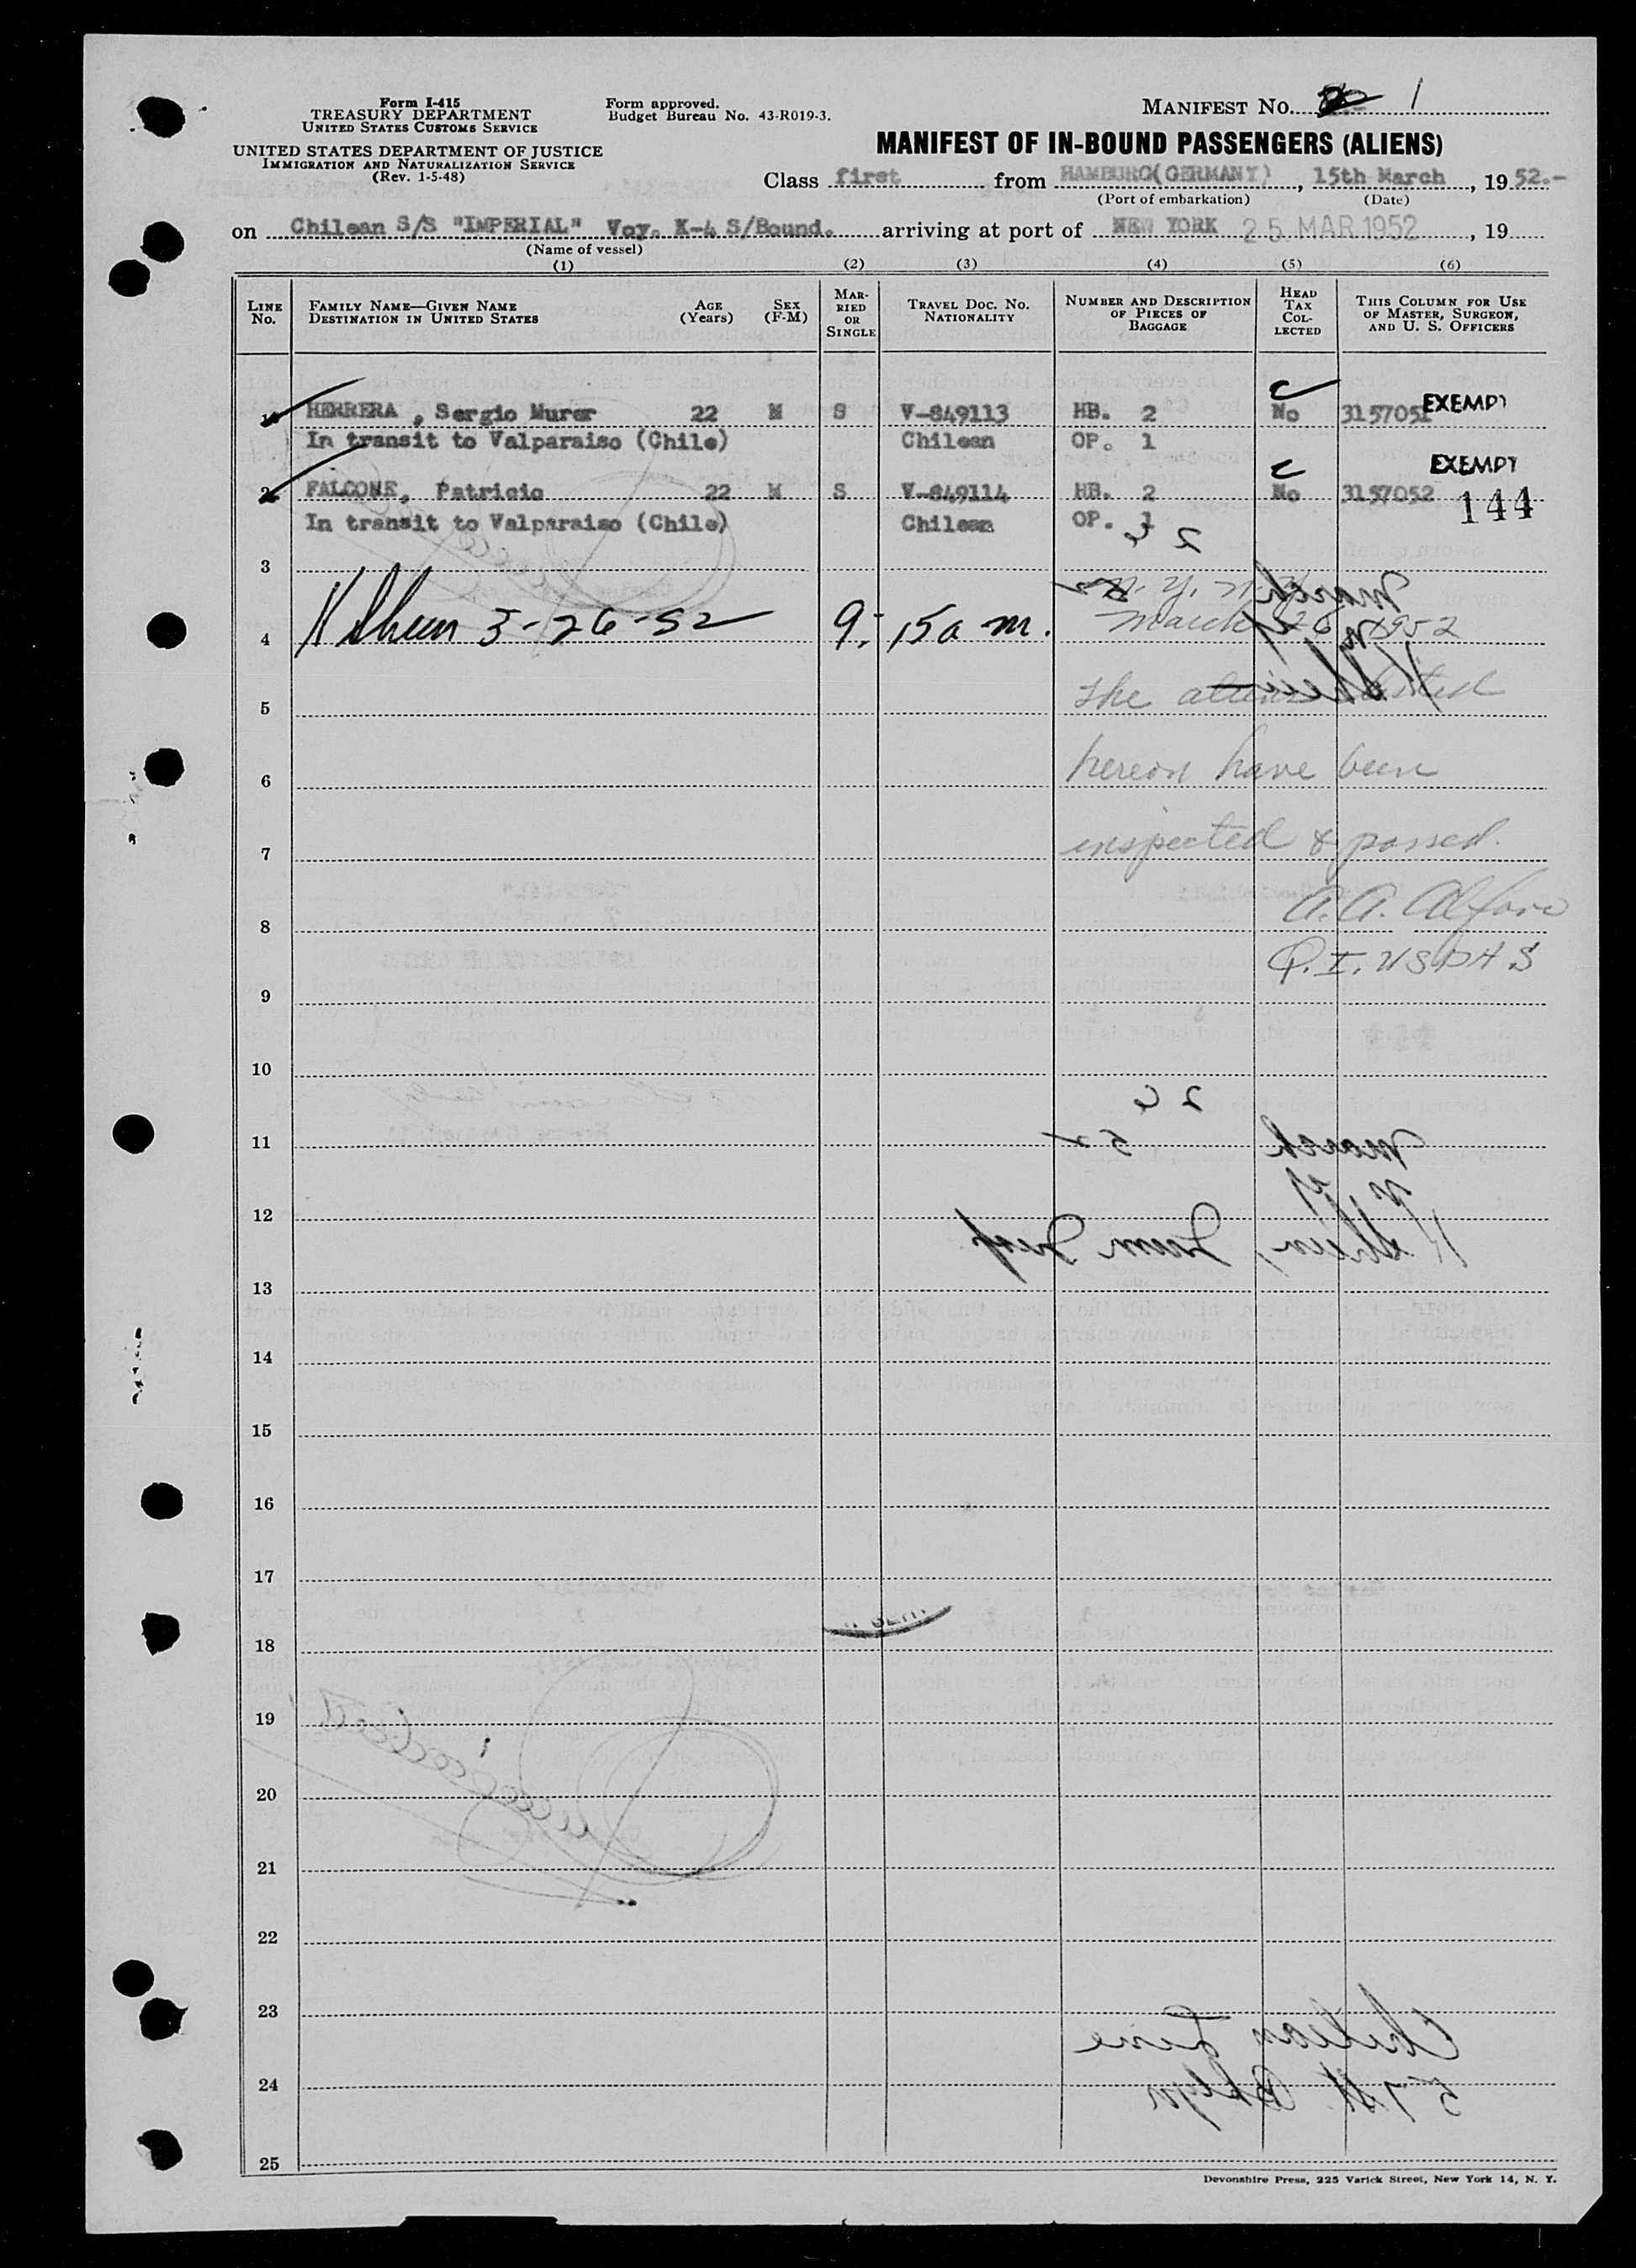 Form I-415
TREASURY DEPARTMENT
UNITED STATES CUSTOMS SERVICE
UNITED STATES DEPARTMENT OF JUSTICE
IMMIGRATION AND NATURALIZATION SERVICE
(Rev. 1-5-48)
Form approved.
Budget Bureau No. 43-R019-3.
MANIFEST NO. 1
MANIFEST OF IN-BOUND PASSENGERS (ALIENS)
Class first from HAMBURG(GERMANY), 15th March, 1952.-
(Port of embarkation) (Date)
on Chilean S/S "IMPERIAL" Voy. K-4 S/Bound. arriving at port of NEW YORK 25 MAR 1952, 19
(Name of vessel)
(1) (2) (3) (4) (5) (6)
LINE No. FAMILY NAME—GIVEN NAME DESTINATION IN UNITED STATES AGE (Years) SEX (F-M) MARRIED OR SINGLE TRAVEL DOC. NO. NATIONALITY NUMBER AND DESCRIPTION OF PIECES OF BAGGAGE HEAD TAX COLLECTED THIS COLUMN FOR USE OF MASTER, SURGEON, AND U. S. OFFICERS
1 HERRERA, Sergio Murer 22 M S V-849113 HB. 2 No 3157051 EXEMPT
In transit to Valparaiso (Chile) Chilean OP. 1
EXEMPT
2 FALCONE, Patricio 22 M S V-849114 HB. 2 No 3157052 144
In transit to Valparaiso (Chile) Chilean OP. 1
26
3
N.Y. N.Y. March
4 K Sheen 3-26-52 9:15 a m. March 26 1952
5 The aliens listed
6 hereon have been
7 inspected & passed.
8 A.A. Alfano
Q.I. USPHS
9
10
26
11 March 52
12 N Y
K Sheen, Imm Insp
13
14
15
16
17
18
19
20
21
22
23 Chilean Line
24 57 St. Bklyn
25
Devonshire Press, 225 Varick Street, New York 14, N. Y.